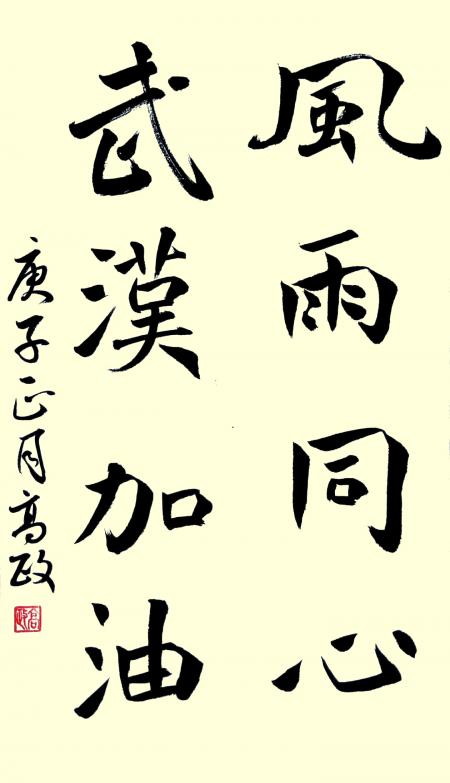 風雨同心
武漢加油
庚子正月高政